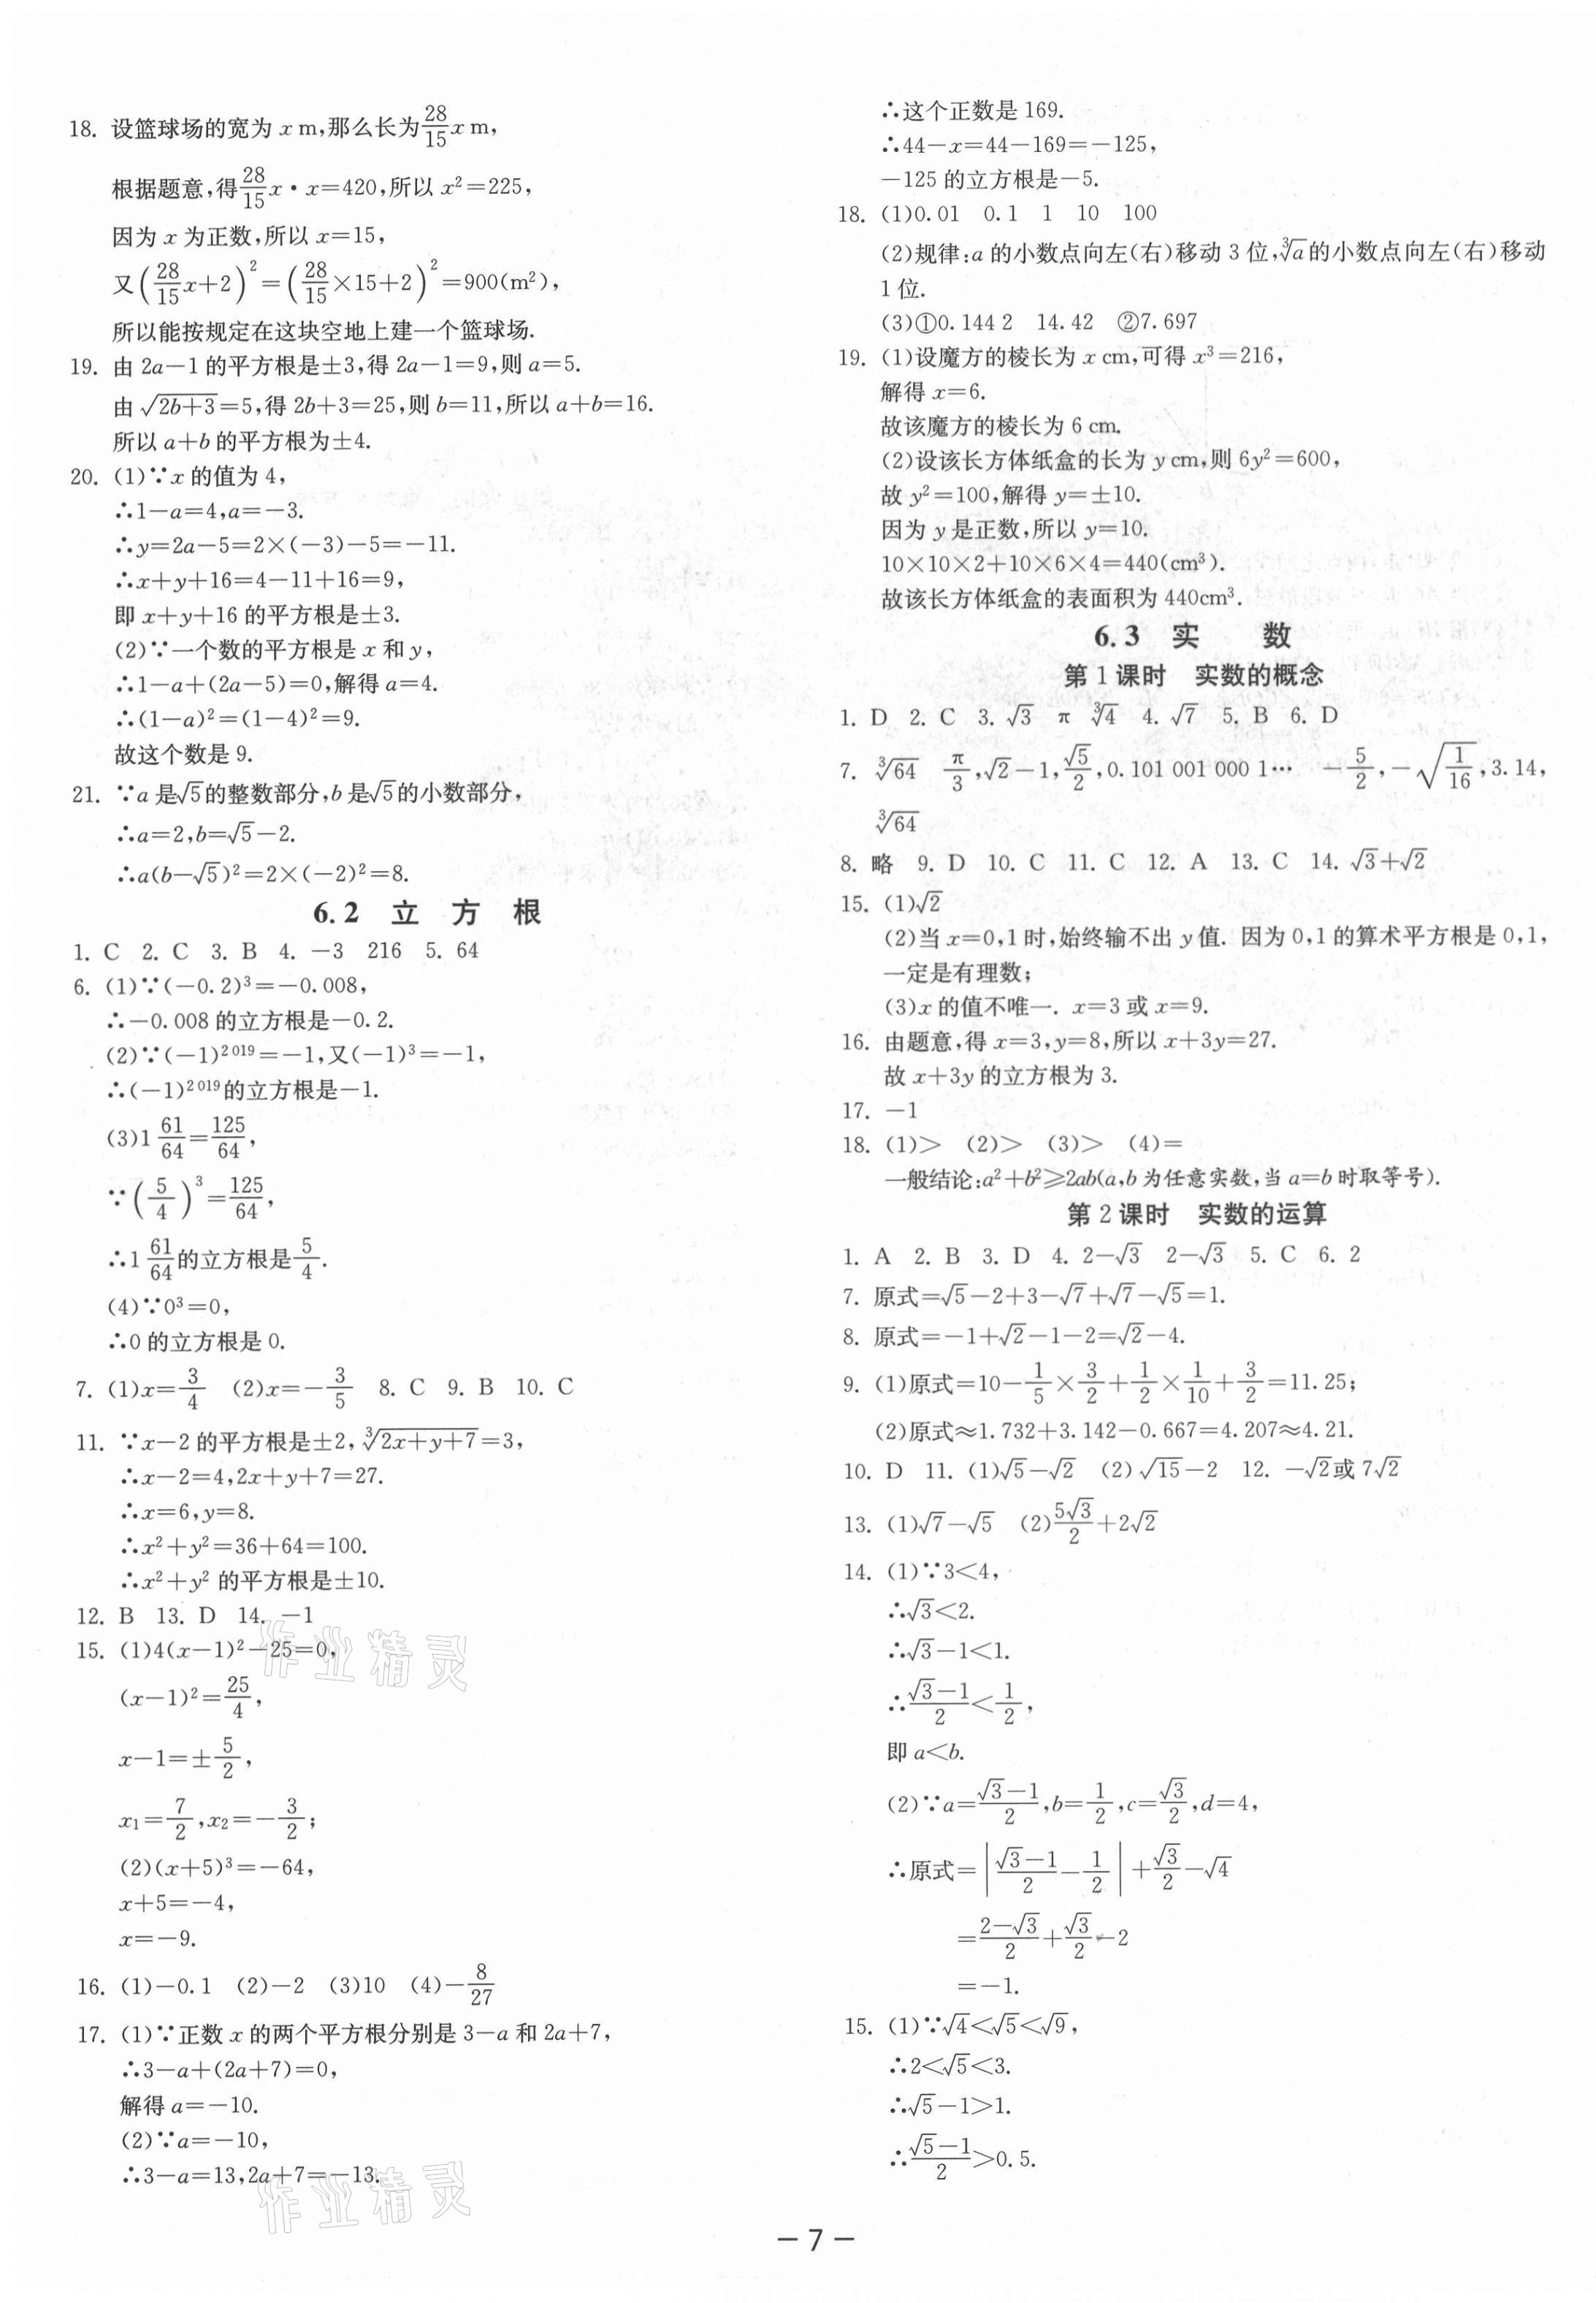 18. 设篮球场的宽为 x m,那么长为 28/15 x m,
根据题意,得 28/15 x·x=420,所以 x²=225,
因为 x 为正数,所以 x=15,
又(28/15 x+2)²=(28/15×15+2)²=900(m²),
所以能按规定在这块空地上建一个篮球场.
19. 由 2a－1 的平方根是±3,得 2a－1=9,则 a=5.
由 √(2b+3)=5,得 2b+3=25,则 b=11,所以 a+b=16.
所以 a+b 的平方根为±4.
20. (1)∵x 的值为 4,
∴1－a=4,a=－3.
∴y=2a－5=2×(－3)－5=－11.
∴x+y+16=4－11+16=9,
即 x+y+16 的平方根是±3.
(2)∵一个数的平方根是 x 和 y,
∴1－a+(2a－5)=0,解得 a=4.
∴(1－a)²=(1－4)²=9.
故这个数是 9.
21. ∵a 是√5的整数部分,b 是√5的小数部分,
∴a=2,b=√5－2.
∴a(b－√5)²=2×(－2)²=8.
6.2 立 方 根
1. C 2. C 3. B 4. －3 216 5. 64
6. (1)∵(－0.2)³=－0.008,
∴－0.008 的立方根是－0.2.
(2)∵(－1)²⁰¹⁹=－1,又(－1)³=－1,
∴(－1)²⁰¹⁹的立方根是－1.
(3)1 61/64=125/64,
∵(5/4)³=125/64,
∴1 61/64的立方根是5/4.
(4)∵0³=0,
∴0 的立方根是 0.
7. (1)x=3/4 (2)x=－3/5 8. C 9. B 10. C
11. ∵x－2 的平方根是±2,∛(2x+y+7)=3,
∴x－2=4,2x+y+7=27.
∴x=6,y=8.
∴x²+y²=36+64=100.
∴x²+y² 的平方根是±10.
12. B 13. D 14. －1
15. (1)4(x－1)²－25=0,
(x－1)²=25/4,
x－1=±5/2,
x₁=7/2,x₂=－3/2;
(2)(x+5)³=－64,
x+5=－4,
x=－9.
16. (1)－0.1 (2)－2 (3)10 (4)－8/27
17. (1)∵正数 x 的两个平方根分别是 3－a 和 2a+7,
∴3－a+(2a+7)=0,
解得 a=－10.
(2)∵a=－10,
∴3－a=13,2a+7=－13.
∴这个正数是 169.
∴44－x=44－169=－125,
－125 的立方根是－5.
18. (1)0.01 0.1 1 10 100
(2)规律:a 的小数点向左(右)移动 3 位,∛a的小数点向左(右)移动
1 位.
(3)①0.144 2 14.42 ②7.697
19. (1)设魔方的棱长为 x cm,可得 x³=216,
解得 x=6.
故该魔方的棱长为 6 cm.
(2)设该长方体纸盒的长为 y cm,则 6y²=600,
故 y²=100,解得 y=±10.
因为 y 是正数,所以 y=10.
10×10×2+10×6×4=440(cm³).
故该长方体纸盒的表面积为 440cm³.
6.3 实 数
第 1 课时 实数的概念
1. D 2. C 3. √3 π ∛4 4. √7 5. B 6. D
7. ∛64 π/3,√2－1,√5/2,0.101 001 000 1… －5/2,－√(1/16),3.14,
∛64
8. 略 9. D 10. C 11. C 12. A 13. C 14. √3+√2
15. (1)√2
(2)当 x=0,1 时,始终输不出 y 值. 因为 0,1 的算术平方根是 0,1,
一定是有理数;
(3)x 的值不唯一. x=3 或 x=9.
16. 由题意,得 x=3,y=8,所以 x+3y=27.
故 x+3y 的立方根为 3.
17. －1
18. (1)> (2)> (3)> (4)=
一般结论:a²+b²≥2ab(a,b 为任意实数,当 a=b 时取等号).
第 2 课时 实数的运算
1. A 2. B 3. D 4. 2－√3 2－√3 5. C 6. 2
7. 原式=√5－2+3－√7+√7－√5=1.
8. 原式=－1+√2－1－2=√2－4.
9. (1)原式=10－1/5×3/2+1/2×1/10+3/2=11.25;
(2)原式≈1.732+3.142－0.667=4.207≈4.21.
10. D 11. (1)√5－√2 (2)√15－2 12. －√2或 7√2
13. (1)√7－√5 (2)5√3/2+2√2
14. (1)∵3<4,
∴√3<2.
∴√3－1<1.
∴(√3－1)/2<1/2,
即 a<b.
(2)∵a=(√3－1)/2,b=1/2,c=√3/2,d=4,
∴原式=|(√3－1)/2－1/2|+√3/2－√4
=(2－√3)/2+√3/2－2
=－1.
15. (1)∵√4<√5<√9,
∴2<√5<3.
∴√5－1>1.
∴(√5－1)/2>0.5.
作业精灵
作业精灵
－7－